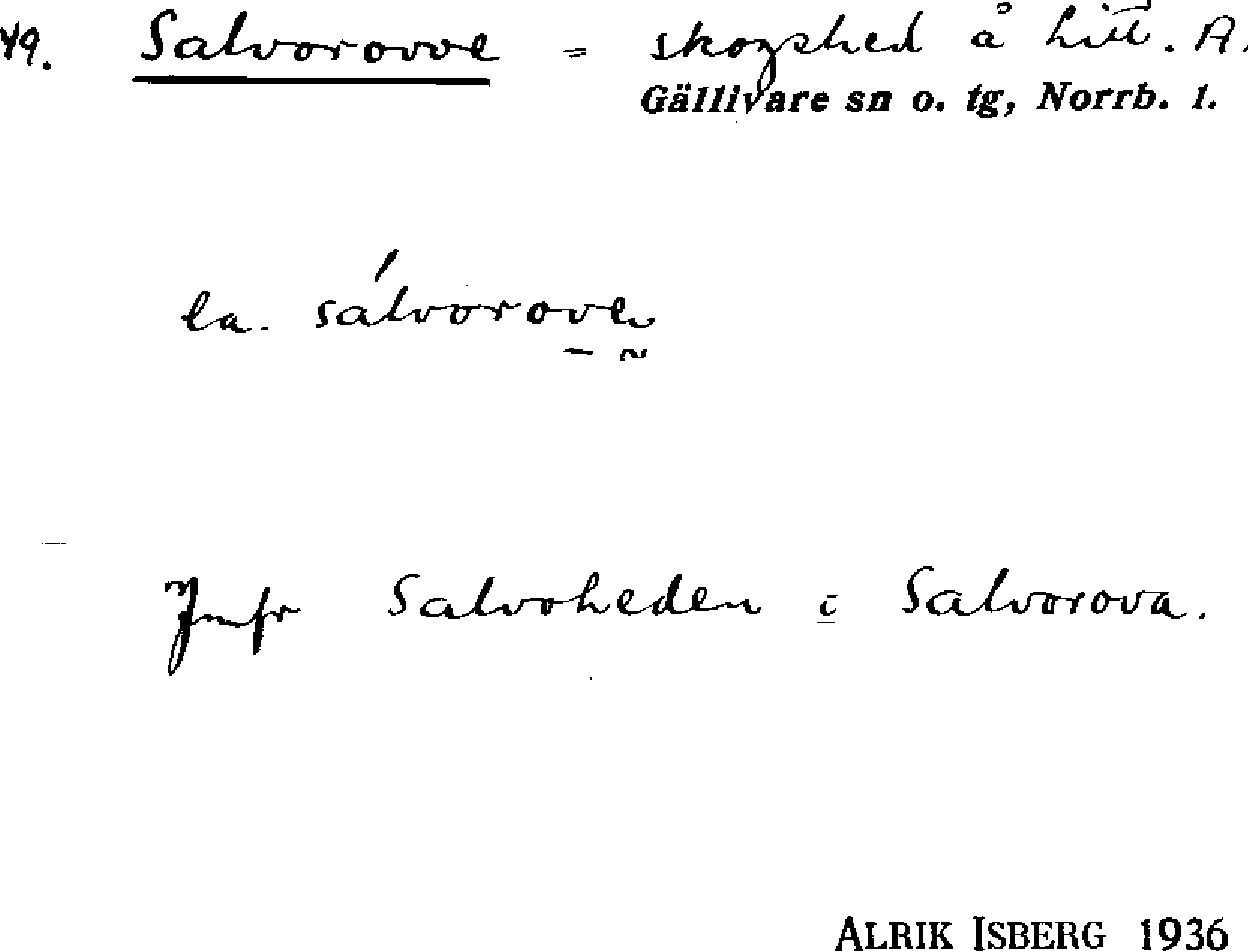 49. Salvorovve = skogshed å hitt. A.
Gällivare sn o. tg, Norrb. l.
la. sálvorove
Jmfr Salvoheden i Salvorova.
ALRIK ISBERG 1936